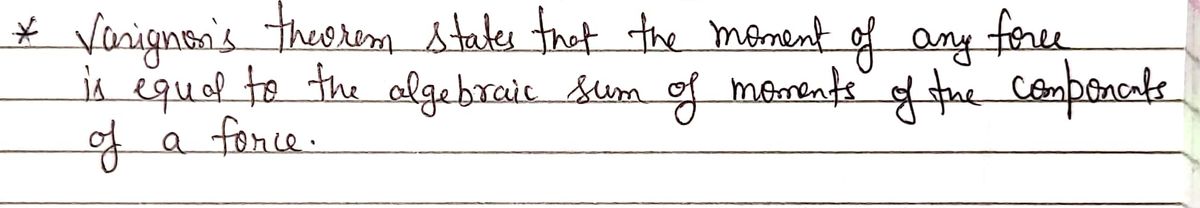 * Varignon's theorem states that the moment of any force
is equal to the algebraic sum of moments of the components
of a force.